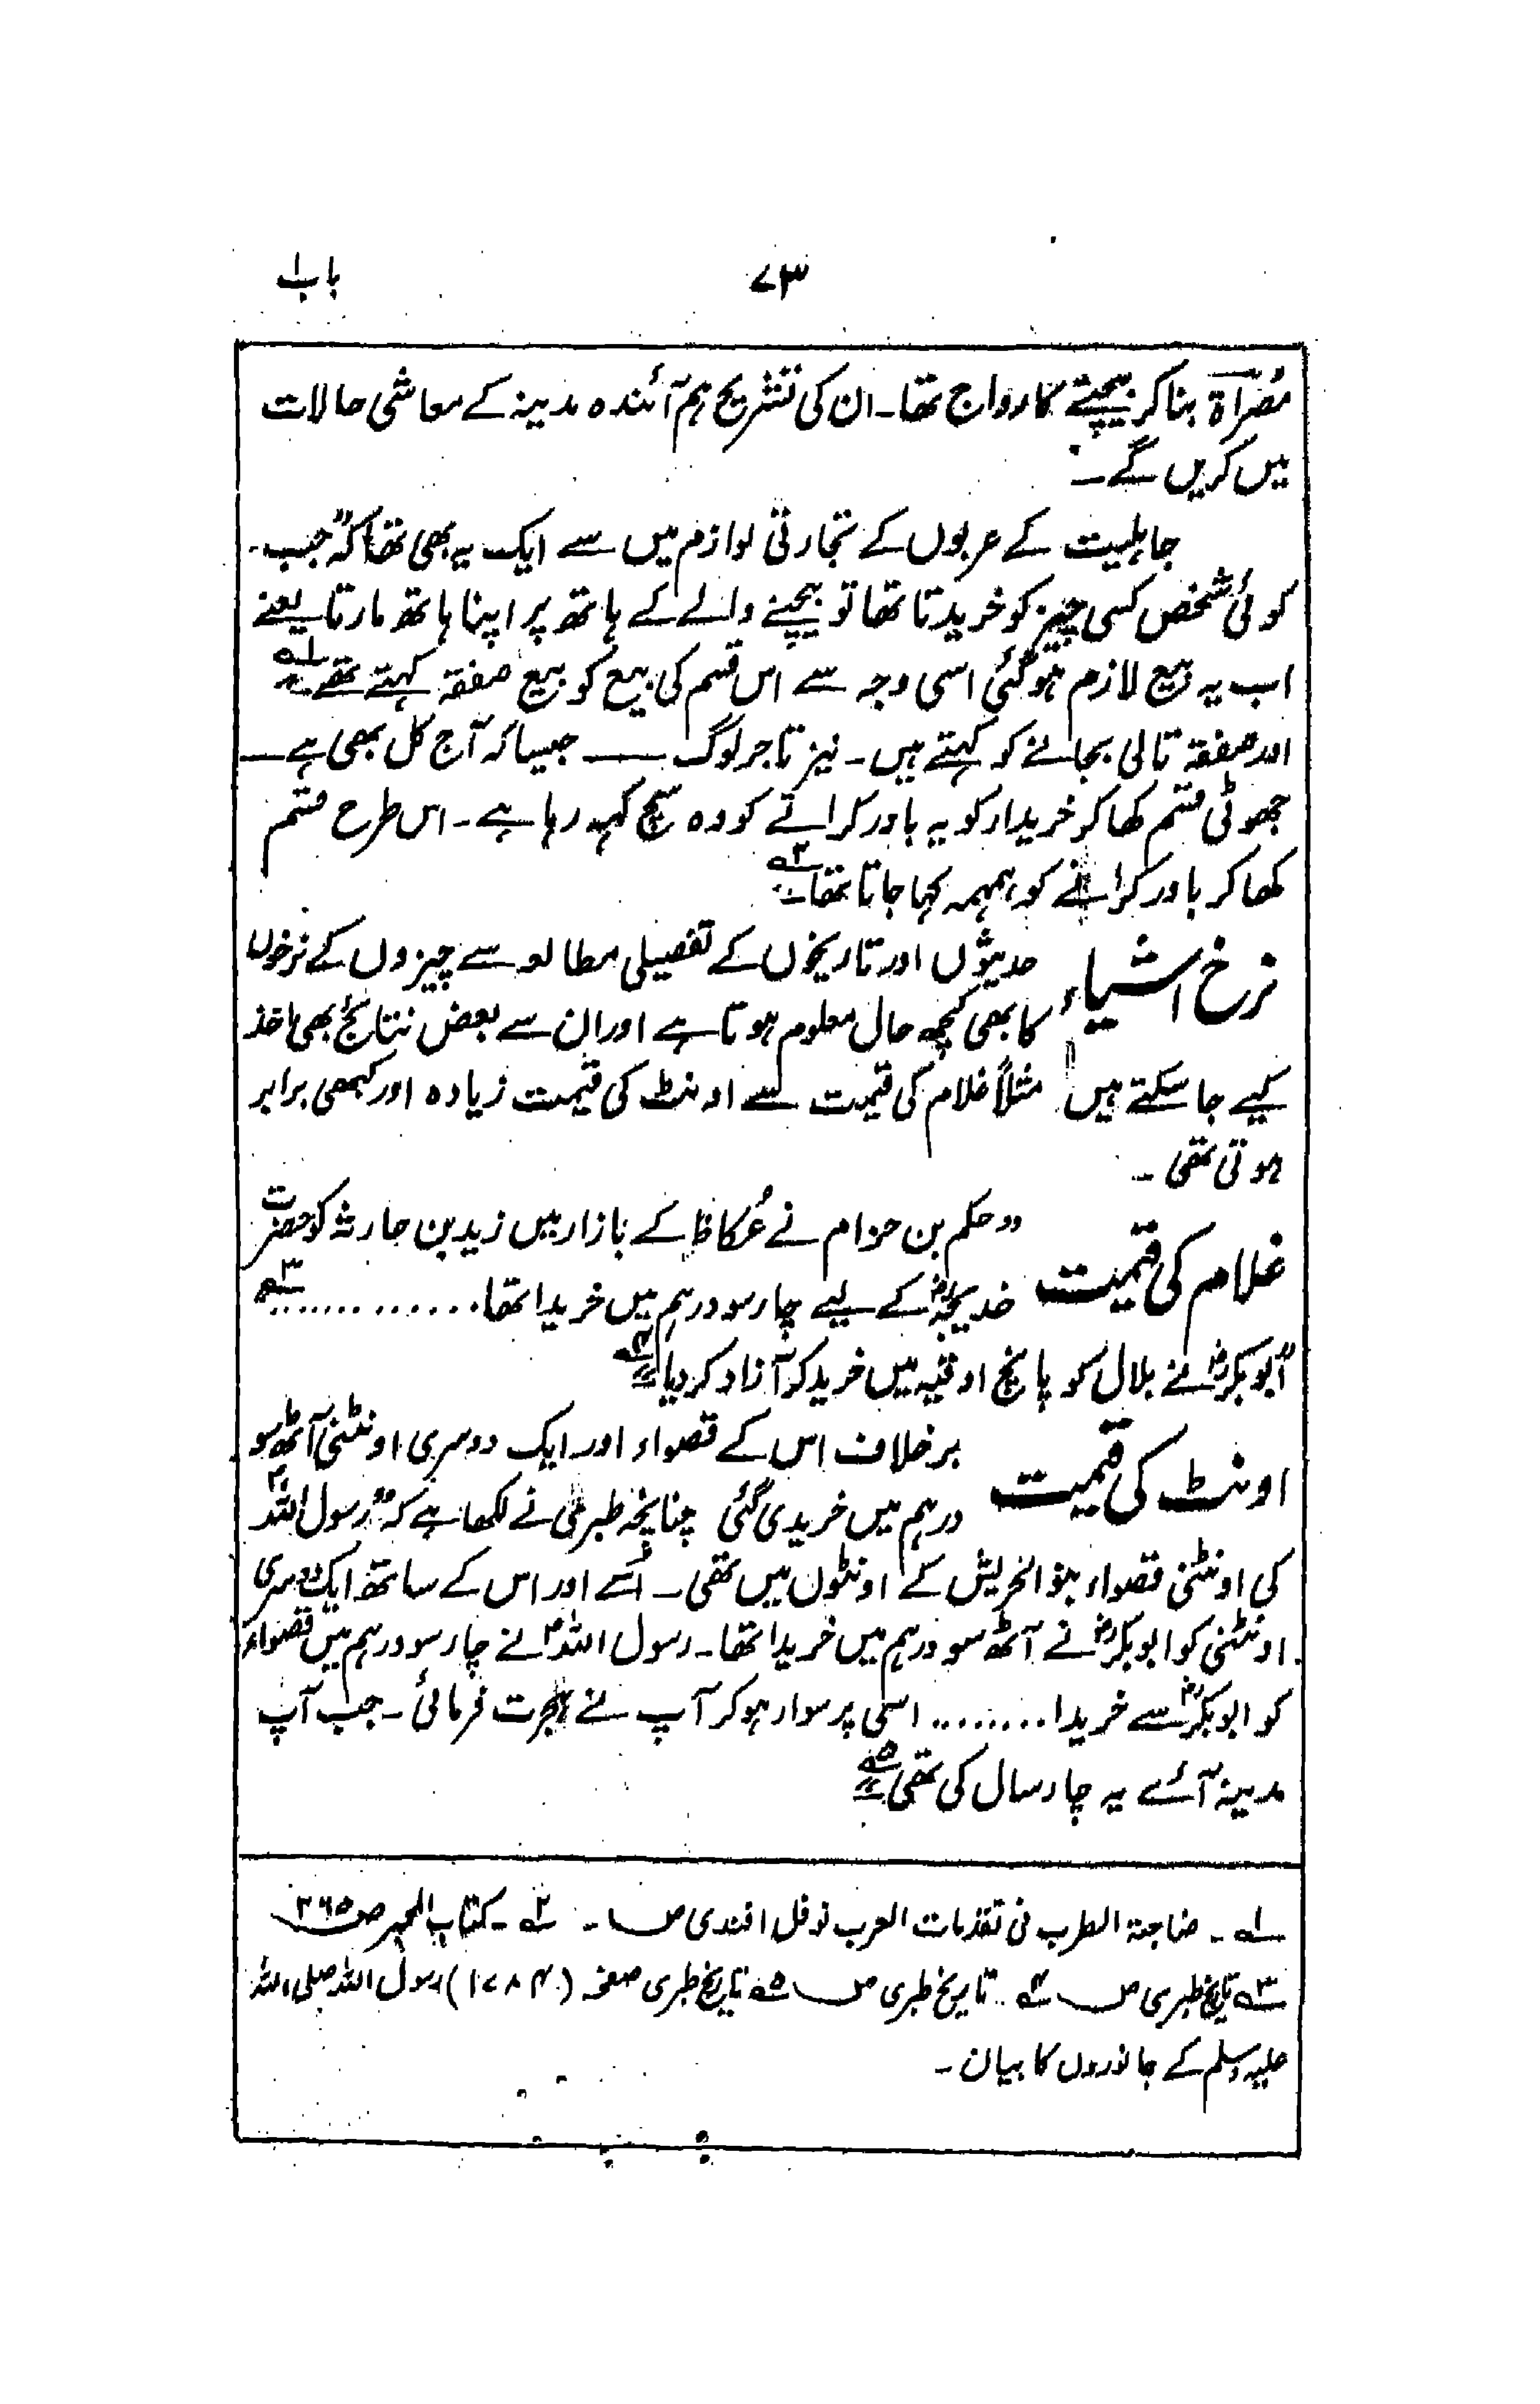 ۷۳
باب۱
مُصَرّاۃ بنا کر بیچنے کا رواج تھا۔ ان کی تشریح ہم آئندہ مدینہ کے معاشی حالات
میں کریں گے۔
جاہلیت کے عربوں کے تجارتی لوازم میں سے ایک یہ بھی تھا کہ "جب
کوئی شخص کسی چیز کو خریدتا تھا تو بیچنے والے کے ہاتھ پر اپنا ہاتھ مارتا یعنے
اب یہ بیع لازم ہوگئی اسی وجہ سے اس قسم کی بیع کو بیع صفقہ کہتے تھے" ۱؎
اور صفقہ تالی بجانے کو کہتے ہیں۔ نیز تاجر لوگ —— جیسا کہ آج کل بھی ہے —
جھوٹی قسم کھا کر خریدار کو یہ باور کراتے کہ وہ سچ کہہ رہا ہے۔ اس طرح قسم
کھا کر باور کرانے کو ہمہمہ کہا جاتا تھا۔ ۲؎
نرخ اشیاء حدیثوں اور تاریخوں کے تفصیلی مطالعہ سے چیزوں کے نرخوں
کا بھی کچھ حال معلوم ہوتا ہے اور ان سے بعض نتائج بھی اخذ
کیے جا سکتے ہیں مثلاً غلام کی قیمت سے اونٹ کی قیمت زیادہ اور کبھی برابر
ہوتی تھی۔
غلام کی قیمت "حکم بن حزام نے عُکاظ کے بازار میں زید بن حارثہ کو حضرت
خدیجہؓ کے لیے چار سو درہم میں خریدا تھا............. ۳؎
"ابوبکرؓ نے بلال کو پانچ اوقیہ میں خرید کر آزاد کر دیا" ۴؎
اونٹ کی قیمت برخلاف اس کے قصواء اور ایک دوسری اونٹنی آٹھ سو
درہم میں خریدی گئی چنانچہ طبری نے لکھا ہے کہ "رسول اللہؐ
کی اونٹنی قصواء بنو الحریش کے اونٹوں میں تھی۔ اُسے اور اس کے ساتھ ایک دوسری
اونٹنی کو ابوبکرؓ نے آٹھ سو درہم میں خریدا تھا۔ رسول اللہؐ نے چار سو درہم میں قصواء
کو ابوبکرؓ سے خریدا......... اسی پر سوار ہو کر آپ نے ہجرت فرمائی۔ جب آپ
مدینہ آئے یہ چار سال کی تھی" ۵؎
۱؎ ۔ ضاجۃ الطرب فی تقدمات العرب نوفل افندی ص ۔ ۲؎ ۔ کتاب المحبر ص ۳۶۵
۳؎ تاریخ طبری ص ۴؎ تاریخ طبری ص ۵؎ تاریخ طبری صفحہ (۱۷۸۴) رسول اللہ صلی اللہ
علیہ وسلم کے جانوروں کا بیان۔